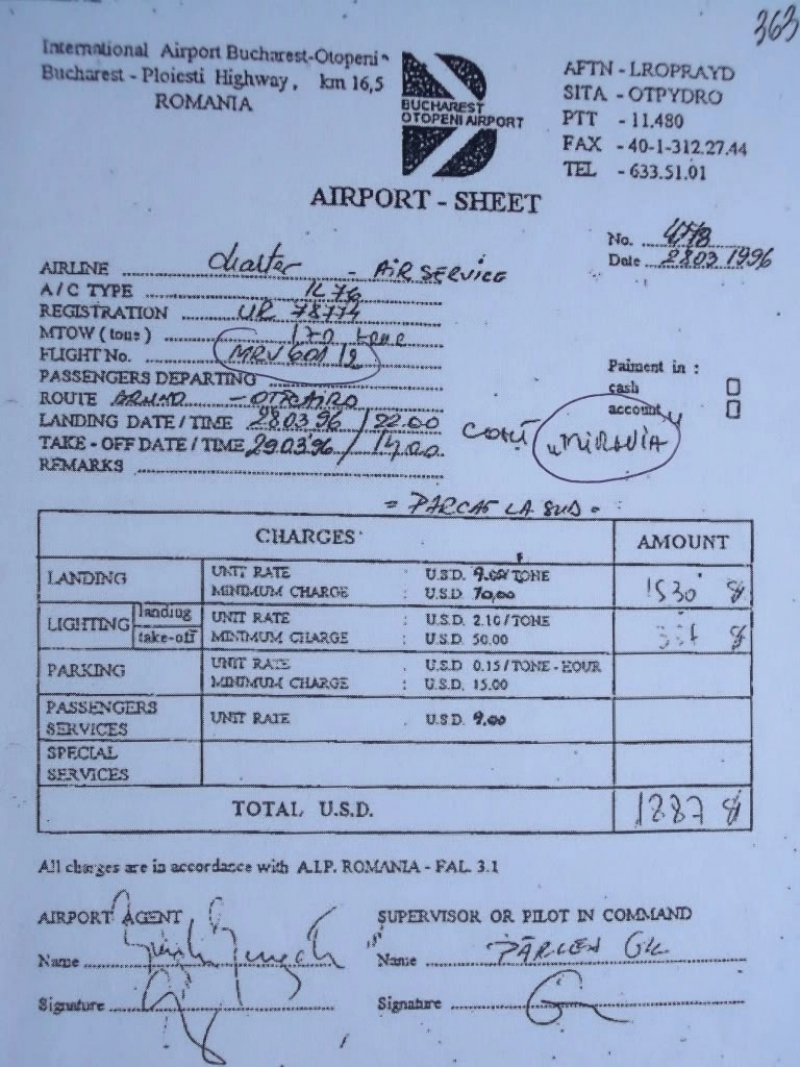 363
International Airport Bucharest-Otopeni
Bucharest - Ploiesti Highway, km 16,5
ROMANIA
BUCHAREST
OTOPENI AIRPORT
AFTN - LROPRAYD
SITA - OTPYDRO
PTT - 11.480
FAX - 40-1-312.27.44
TEL - 633.51.01
AIRPORT - SHEET
No.
Date 28.03 1996
AIRLINE charter - AIR SERVICE
A/C TYPE IL 76
REGISTRATION UR 78774
MTOW ( tons ) 170 tone
FLIGHT No. MRV 601 12
PASSENGERS DEPARTING
ROUTE - OTP
LANDING DATE / TIME 28.03.96 / 22.00
TAKE - OFF DATE / TIME 29.03.96 / 14.00
REMARKS
Paiment in :
cash
account
cont "MIRAVIA
= PARCAT LA SUD =
CHARGES AMOUNT
LANDING UNIT RATE : U.S.D. 9.00/TONE 1530 $
MINIMUM CHARGE : U.S.D. 70,00
LIGHTING landing UNIT RATE : U.S.D. 2.10/TONE $
take-off MINIMUM CHARGE : U.S.D. 50.00
PARKING UNIT RATE : U.S.D 0.15/TONE - HOUR
MINIMUM CHARGE : U.S.D. 15.00
PASSENGERS SERVICES UNIT RATE : U.S.D. 9.00
SPECIAL SERVICES
TOTAL U.S.D. 1887 $
All charges are in accordance with A.I.P. ROMANIA - FAL. 3.1
AIRPORT AGENT
Name
Signature
SUPERVISOR OR PILOT IN COMMAND
Name
Signature